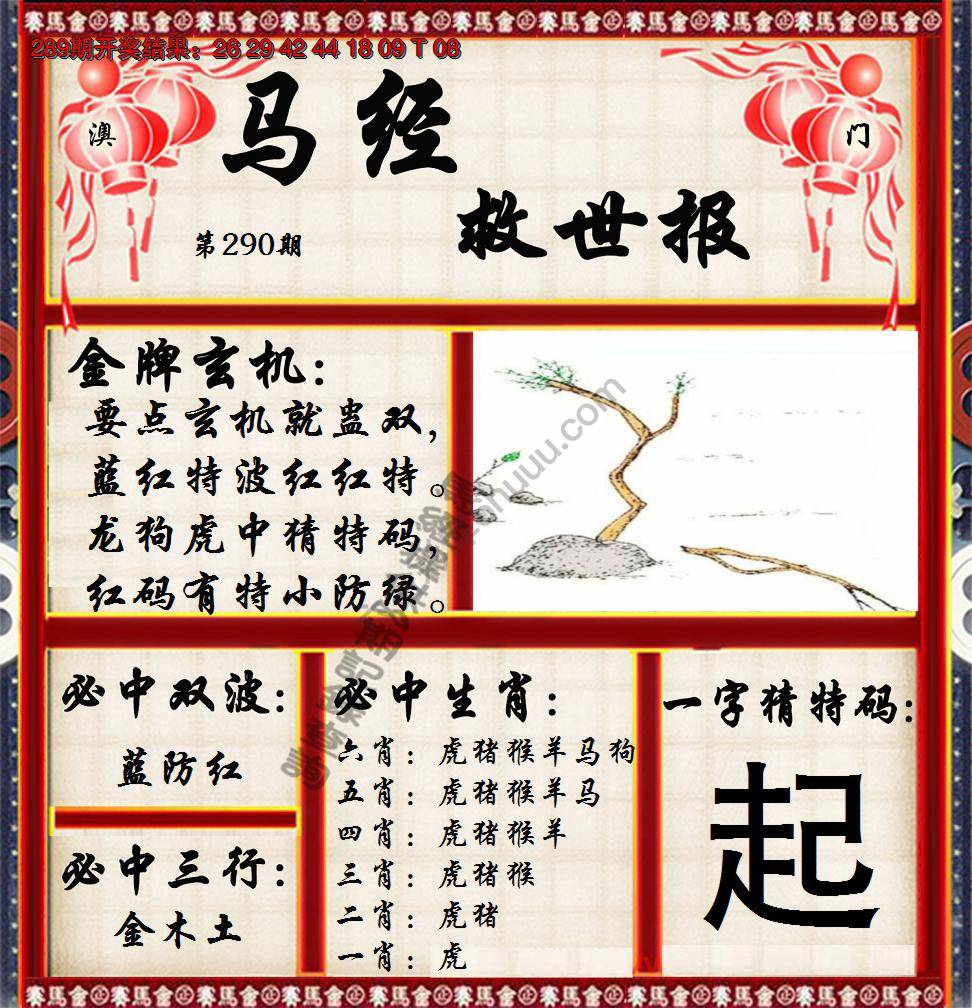 289期开奖结果：26 29 42 44 18 09 T 08
澳
门
马经
救世报
第290期
金牌玄机：
要点玄机就蛊双，
蓝红特波红红特。
龙狗虎中猜特码，
红码有特小防绿。
必中双波：
蓝防红
必中三行：
金木土
必中生肖：
六肖：虎猪猴羊马狗
五肖：虎猪猴羊马
四肖：虎猪猴羊
三肖：虎猪猴
二肖：虎猪
一肖：虎
一字猜特码：
起